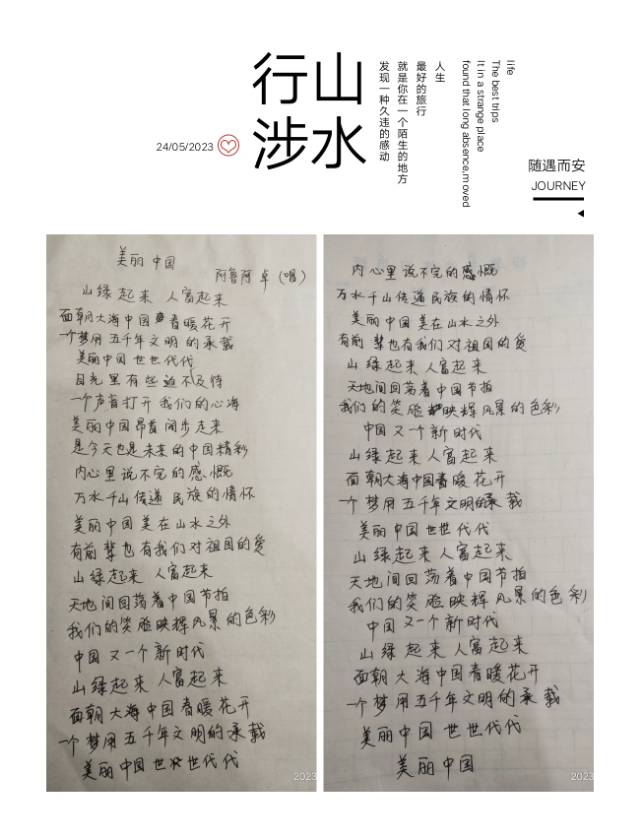 24/05/2023
行山
涉水
人生
最好的旅行
就是你在一个陌生的地方
发现一种久违的感动
life
The best trips
It in a strange place
found that long absence,moved
随遇而安
JOURNEY
美丽中国
阿鲁阿卓(唱)
山绿起来 人富起来
面朝大海中国春暖花开
一个梦用五千年文明的承载
美丽中国世世代代
目光里有些迫不及待
一个声音打开我们的心海
美丽中国昂首阔步走来
是今天也是未来的中国精彩
内心里说不完的感慨
万水千山传递民族的情怀
美丽中国美在山水之外
有前辈也有我们对祖国的爱
山绿起来 人富起来
天地间回荡着中国节拍
我们的笑脸映辉风景的色彩
中国又一个新时代
山绿起来人富起来
面朝大海中国春暖花开
一个梦用五千年文明的承载
美丽中国世世代代
2023
内心里说不完的感慨
万水千山传递民族的情怀
美丽中国美在山水之外
有前辈也有我们对祖国的爱
山绿起来人富起来
天地间回荡着中国节拍
我们的笑脸映辉风景的色彩
中国又一个新时代
山绿起来人富起来
面朝大海中国春暖花开
一个梦用五千年文明的承载
美丽中国世世代代
山绿起来人富起来
天地间回荡着中国节拍
我们的笑脸映辉风景的色彩
中国又一个新时代
山绿起来人富起来
面朝大海中国春暖花开
一个梦用五千年文明的承载
美丽中国世世代代
美丽中国
2023